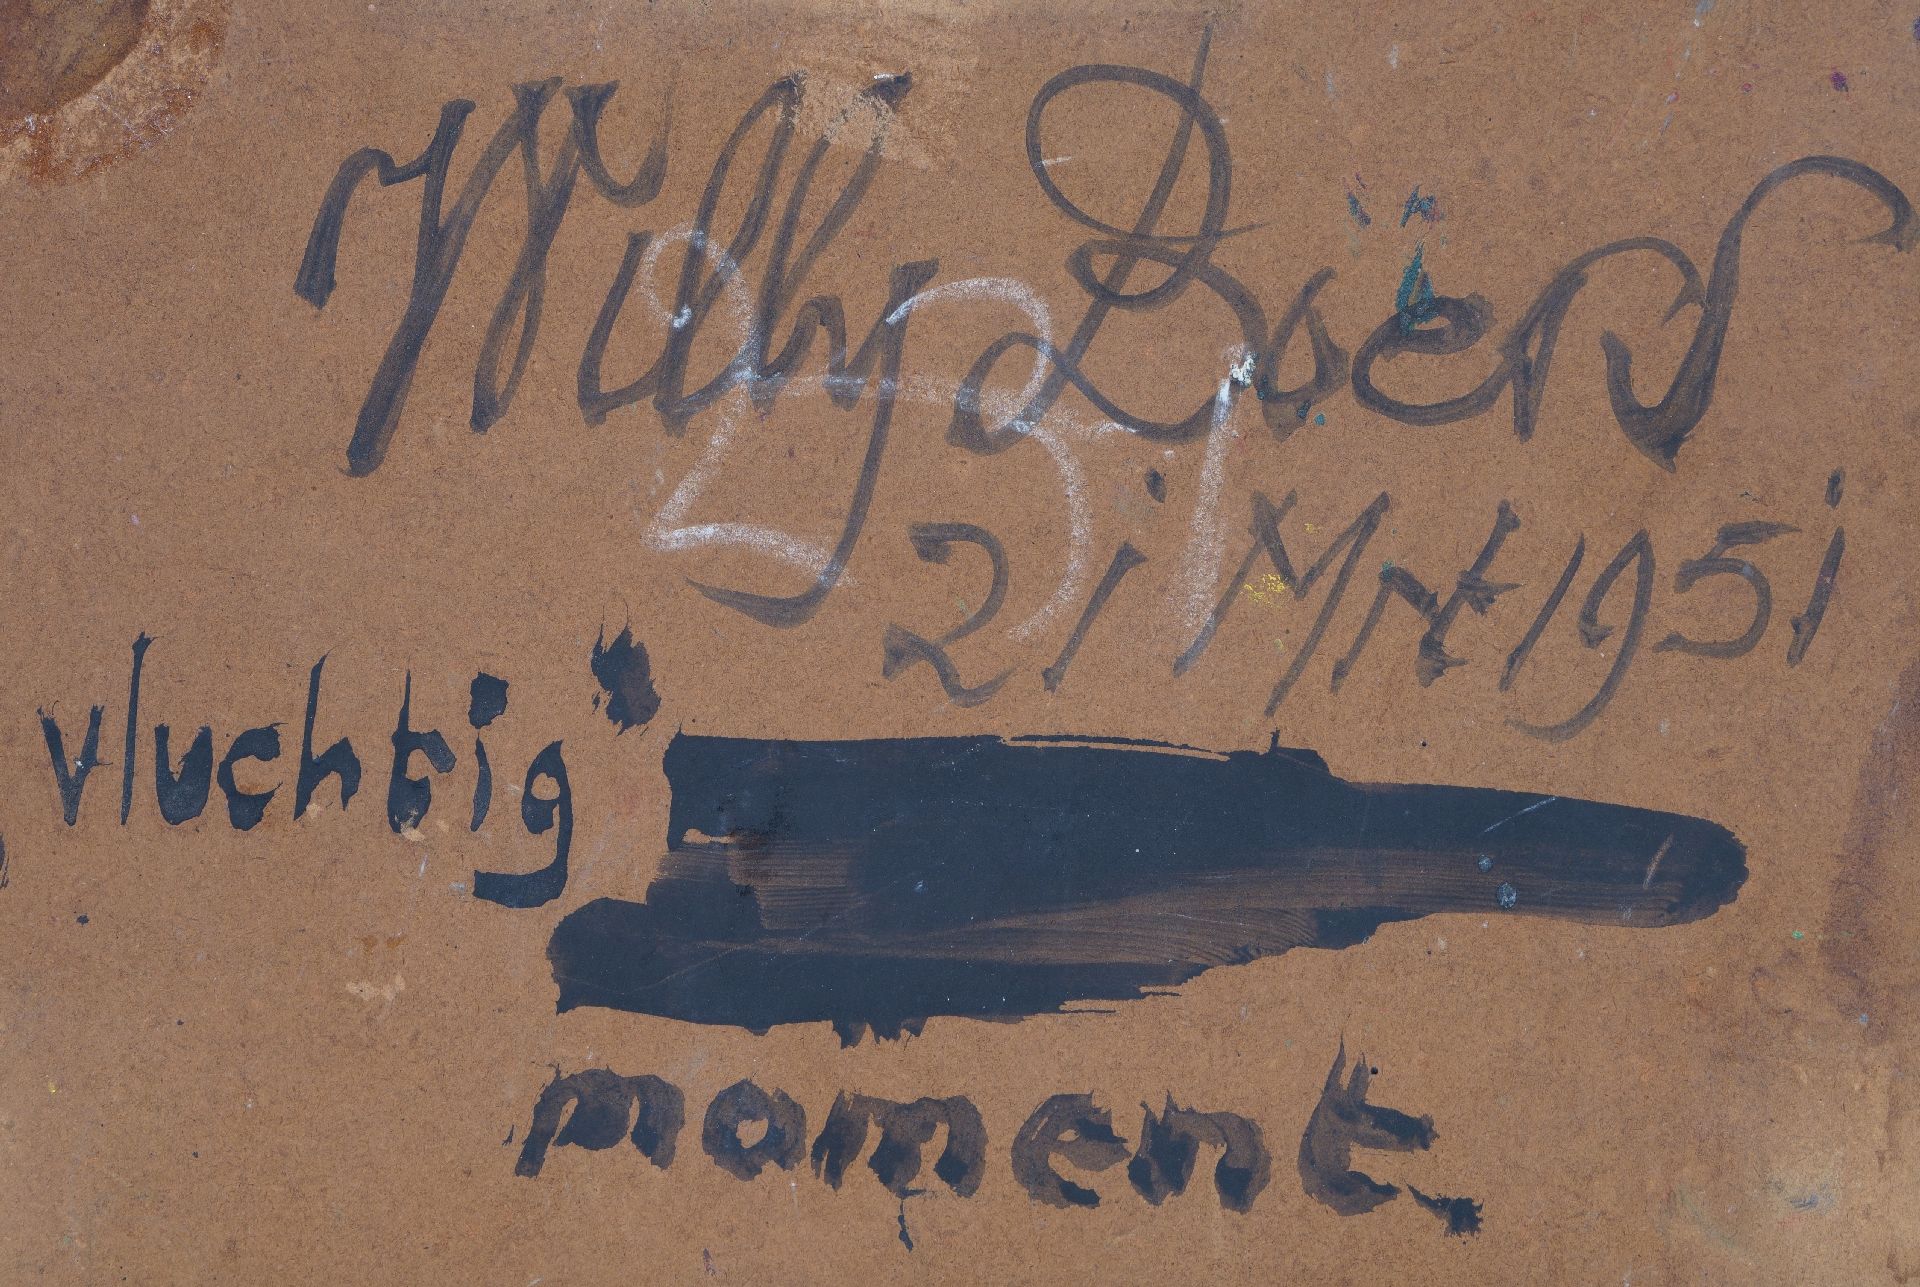 Willy Boers
231
21 Mrt 1951
vluchtig
moment.